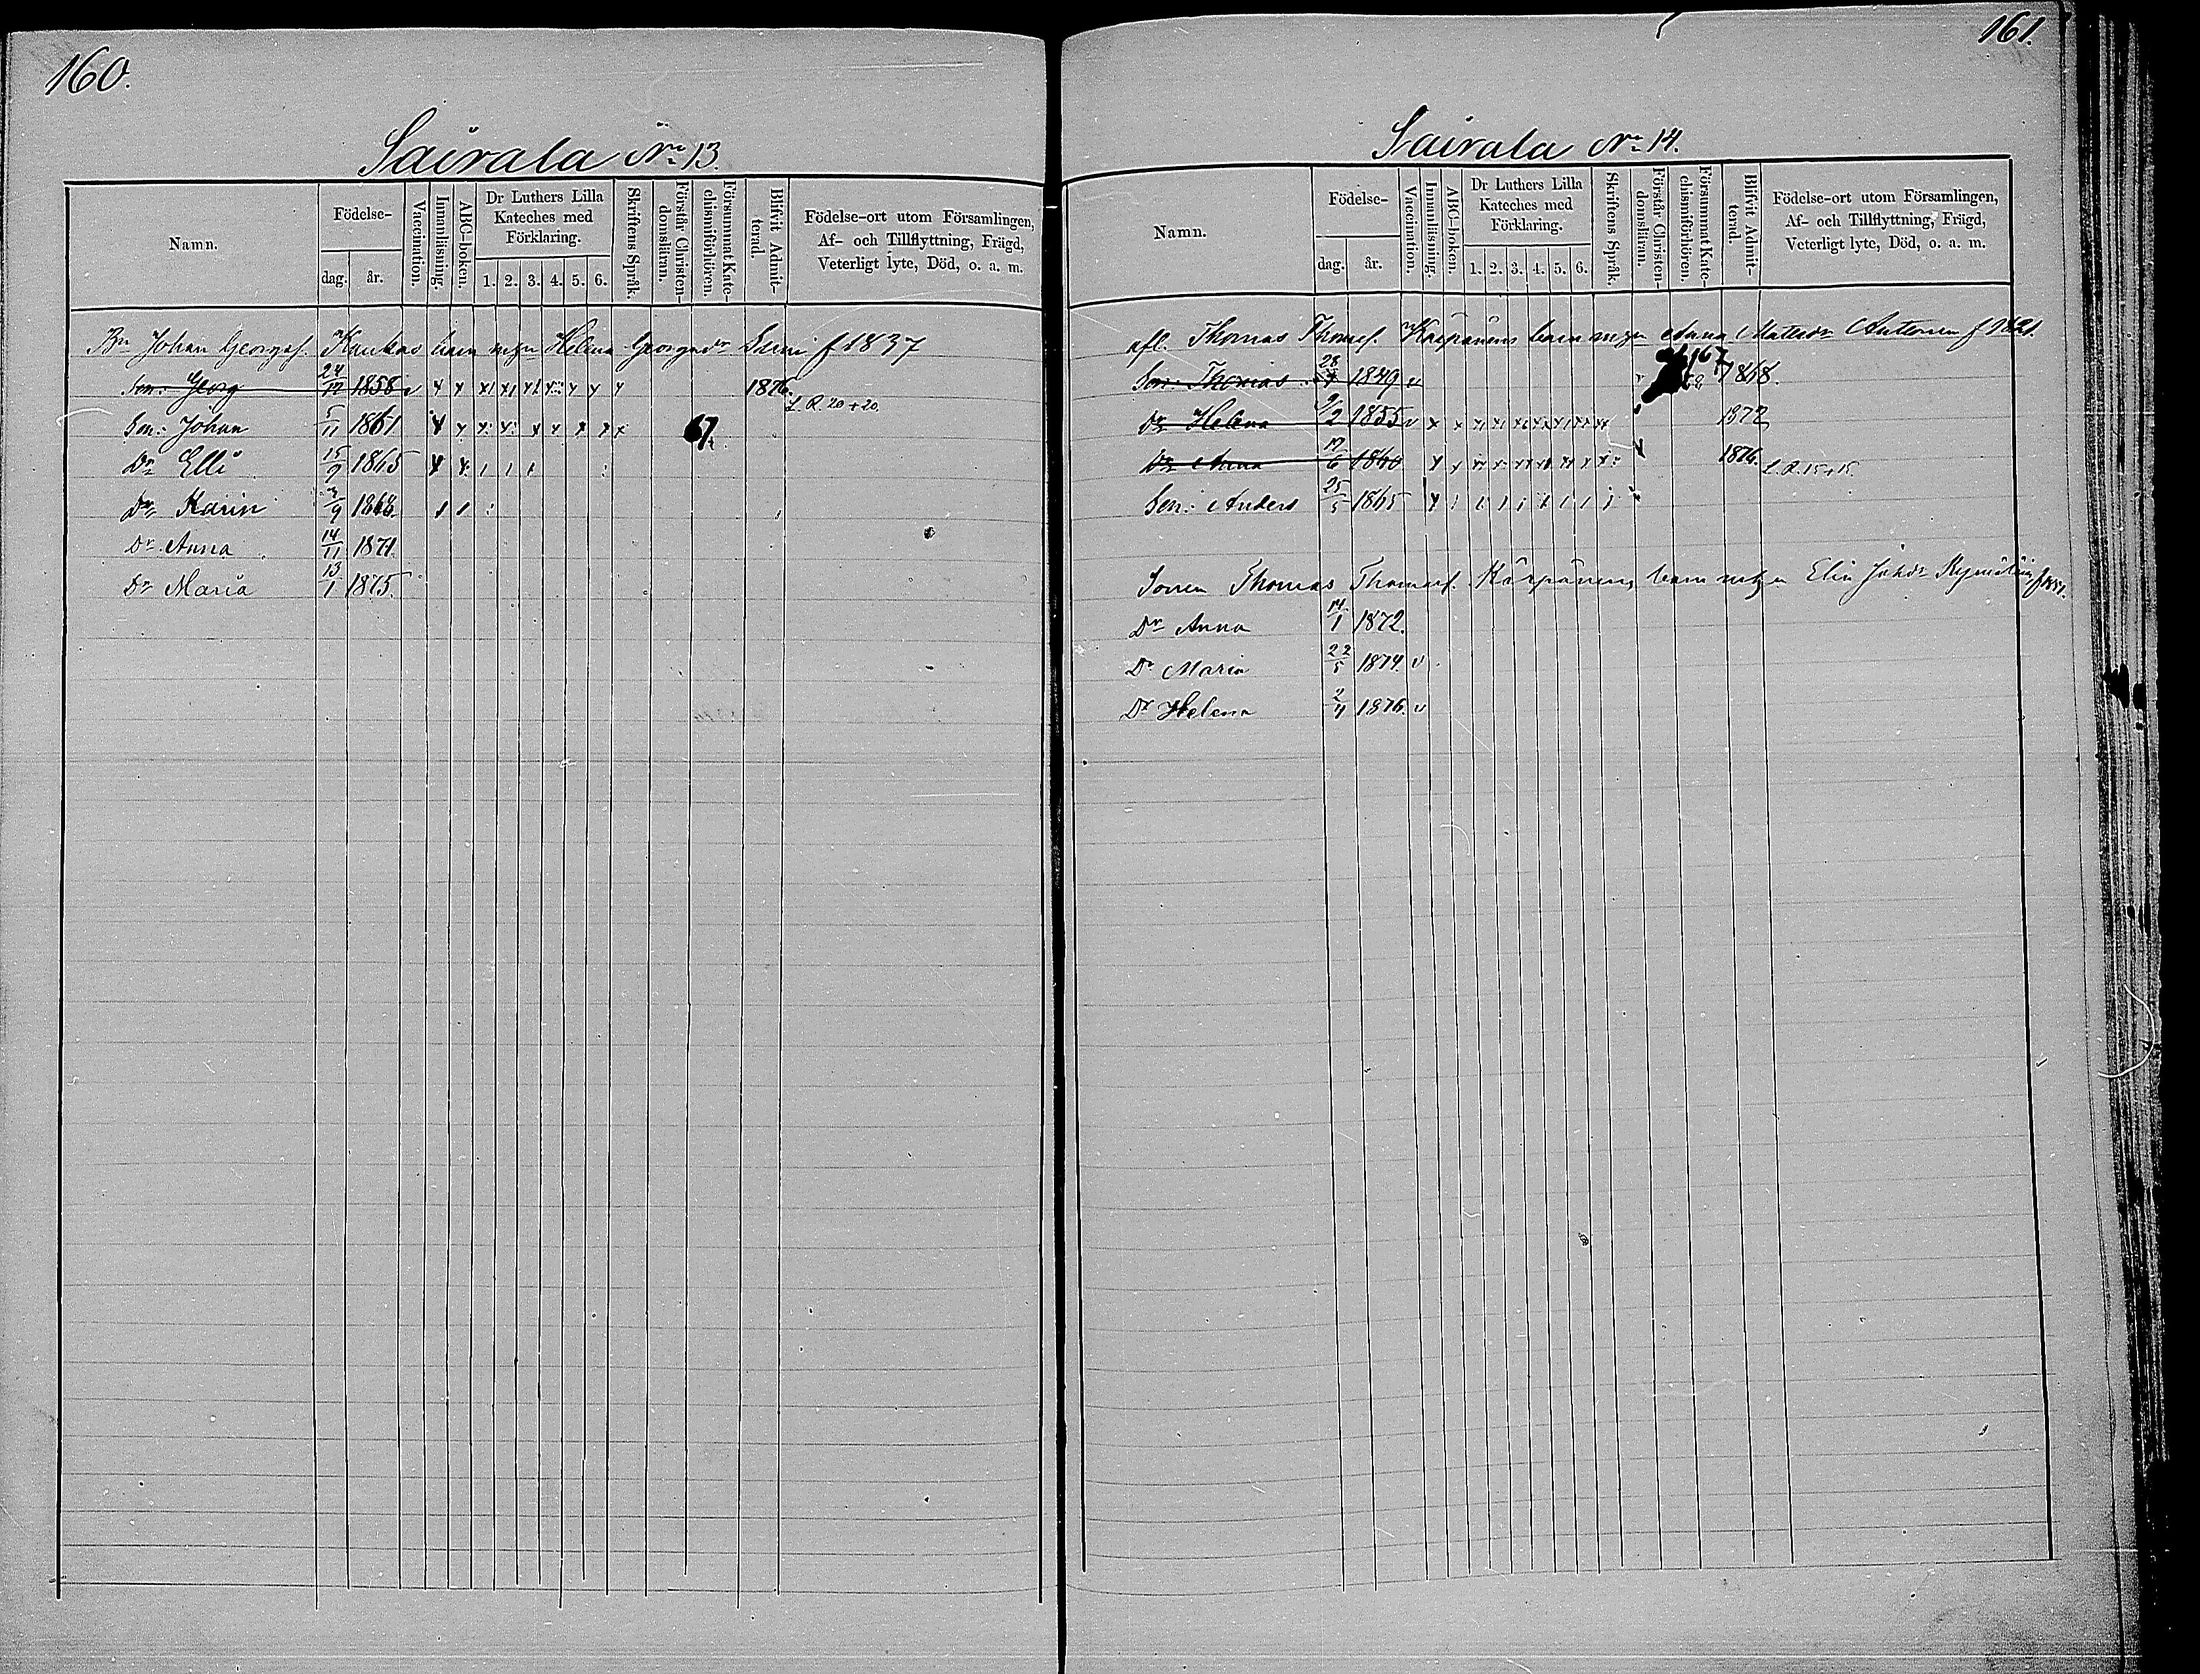 160.
Sairala No 13.
Namn.
Födelse-
dag. år.
Vaccination.
Innanläsning.
ABC-boken.
Dr Luthers Lilla Kateches med Förklaring.
1. 2. 3. 4. 5. 6.
Skriftens Språk.
Förstår Christendomsläran.
Försummat Katechismiförhören.
Blifvit Admitterad.
Födelse-ort utom Församlingen,
Af- och Tillflyttning, Frägd,
Veterligt lyte, Död, o. a. m.
Bn Johan Georgsf. Kaukas barn m hu Helena Georgsdr Summi f 1837
Son: Georg 24/12 1858 v x x x x x x x x x 1876. L. R. 20 + 20.
Son: Johan 5/11 1861 x x x x x x x x x 67
Dr Elli 15/9 1865 x x
Dr Karin 3/9 1868.
Dr Anna 14/11 1871.
Dr Maria 13/1 1875.
161.
Sairala No 14.
Namn.
Födelse-
dag. år.
Vaccination.
Innanläsning.
ABC-boken.
Dr Luthers Lilla Kateches med Förklaring.
1. 2. 3. 4. 5. 6.
Skriftens Språk.
Förstår Christendomsläran.
Försummat Katechismiförhören.
Blifvit Admitterad.
Födelse-ort utom Församlingen,
Af- och Tillflyttning, Frägd,
Veterligt lyte, Död, o. a. m.
afl. Thomas Thomsf. Kärpänens barn Anna Matsdr Antonen f 1821.
Son: Thomas 28 1849 v 67 1868.
Dr Helena 9/2 1855 v 1872
Dr Anna 17/6 1860 1876. L. R. 15 + 15.
Son: Anders 25/5 1865
Sonen Thomas Thomasf. Kärpänens barn Elin Johdr
Dr Anna 14/1 1872.
Dr Maria 22/5 1874. v
Dr Helena 2/4 1876. v